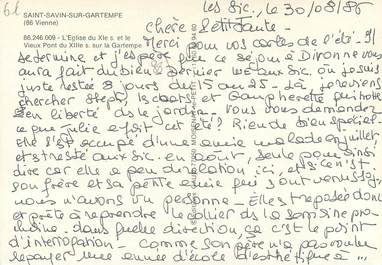 61
SAINT-SAVIN-SUR-GARTEMPE
(86 Vienne)
86.246.009 - L'Eglise du XIe s. et le
Vieux Pont du XIIIe s. sur la Gartempe
Les Sic. le 30/08/86
Chère Petit Tante -
Merci pour vos cartes de l'été - Il
se termine et j'espère que ce séjour à Divonne vous
aura fait du bien. Dernier we aux Sic. où je suis
juste restée 8 jours du 15 au 25. Là je reviens
chercher Steph, les chats et
en liberté ds le jardin. Vous vous demandez
ce que Julie a fait cet été? Rien de bien spécial -
elle s'est occupé d'une amie malade en juillet
et est restée aux Sic. en août, seule pour ainsi
dire car elle a peu de relation ici, et si ce n'est
son frère et sa petite amie qui sont venus
nous n'avons vu personne - Elle est reposée donc
et prête à reprendre le collier ds la semaine pro-
chaine - dans quelle direction, ça c'est le point
d'interrogation - comme son père n'a pas voulu
repayer une année d'école d'esthétique à